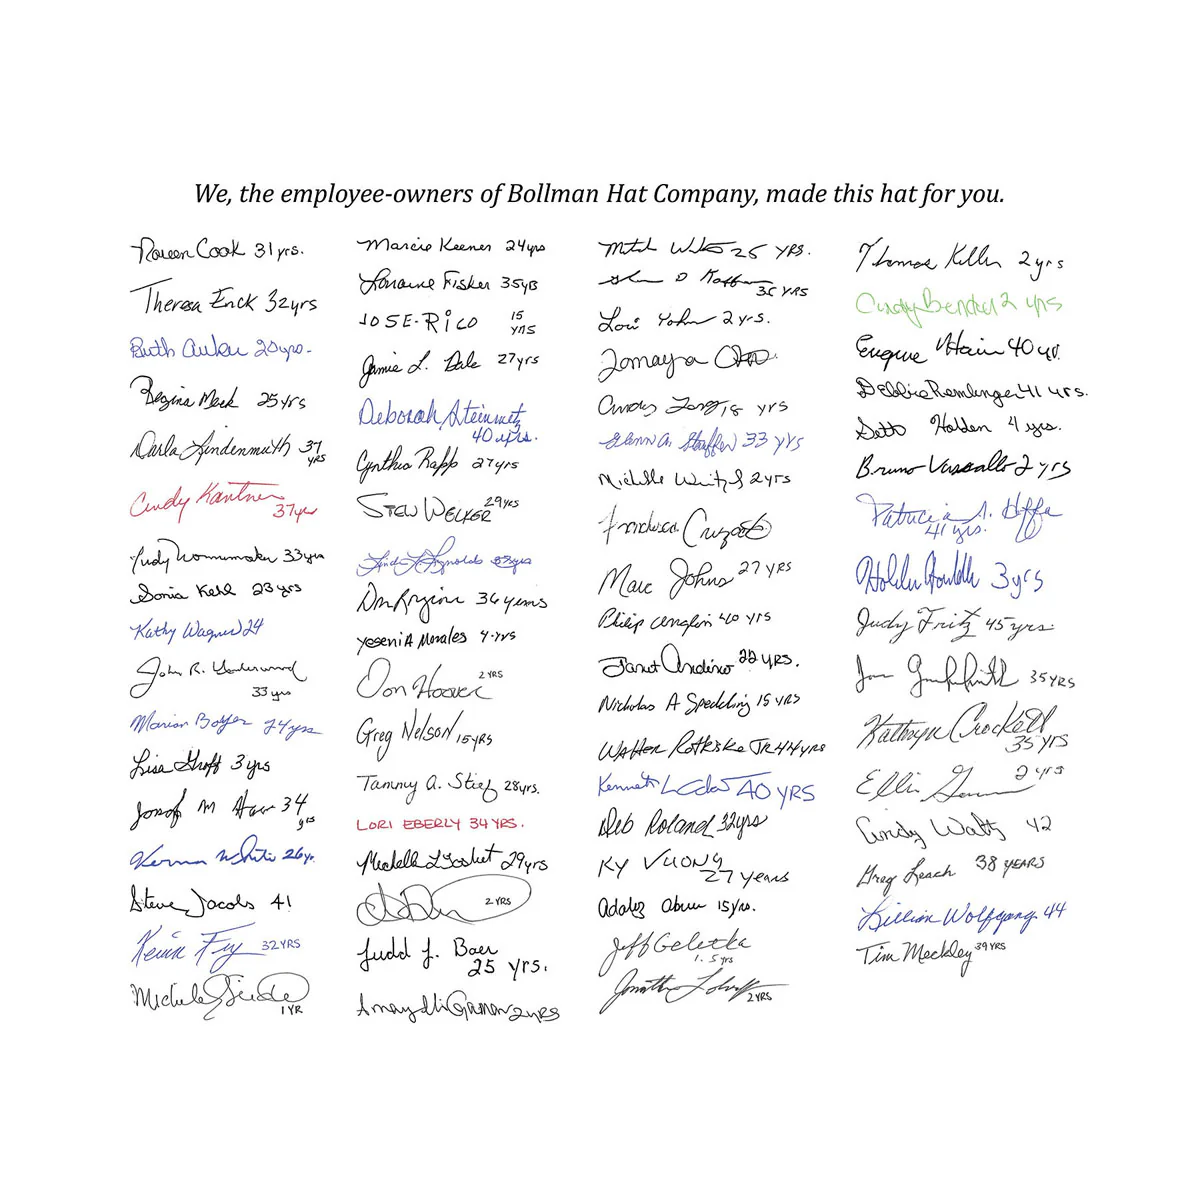 We, the employee-owners of Bollman Hat Company, made this hat for you.
Cook 31yrs.
Theresa Enck 32yrs
Ruth Auker 20yrs.
Regina Meck 25yrs
Darla Lindenmuth 37
YRS
Cindy Kantner
37yrs
Judy 33yrs
Sonia Kehl 23yrs
Kathy Wagner 24
John R. Underwood
33yrs
Marian Boyer 24yrs
Lisa Groff 3yrs
M 34
yrs
26yr.
Steve Jacobs 41
Kevin Fry 32YRS
Michele
1YR
Marcie Keener 24yrs
Lorraine Fisher 35yrs
JOSE-RICO 15
yrs
Jamie L. Dale 27yrs
Deborah Steinmetz
40 yrs.
Cynthia Rapp 27yrs
STEW WELKER 29yrs
Linda L Reynolds 33yrs
36 years
YeseniA Morales 4-yrs
Don Hoover 2YRS
Greg Nelson 15YRS
Tammy A. Stief 28yrs.
LORI EBERLY 34YRS.
Mechelle L 29yrs
2YRS
Judd J. Baer
25 yrs.
2YRS
Mitch 25 YRS.
35 YRS
Lori Yohn 2yrs.
Tomayra
Cindy 18 yrs
Glenn A. Stauffer 33 yrs
Michelle 2yrs
Francheska
Marc Johns 27YRS
Philip Anglin 40 yrs
Janet Andino 22YRS.
Nicholas A Speckling 15YRS
Walter Rothiske JR 44yrs
Kenneth 40 YRS
Deb Roland 32yrs
KY VUONG
27 years
15yrs.
Jeff Geletka
1.5yrs
Jonathan
2YRS
Thomas Keller 2yrs
Cindy Bender 2 yrs
Eugene Hain 40yr.
Debbie Remlinger 41 yrs.
Seth Holden 4 yrs.
Bruno Vassallo 2yrs
Patricia A. Hoffa
41yrs.
3yrs
Judy Fritz 45yrs.
35YRS
Kathryn Crockett
35 YRS
Ellis 2yrs
Cindy Waltz 42
Greg Leach 38 YEARS
Lillian Wolfgang 44
Tim Meckley 39YRS